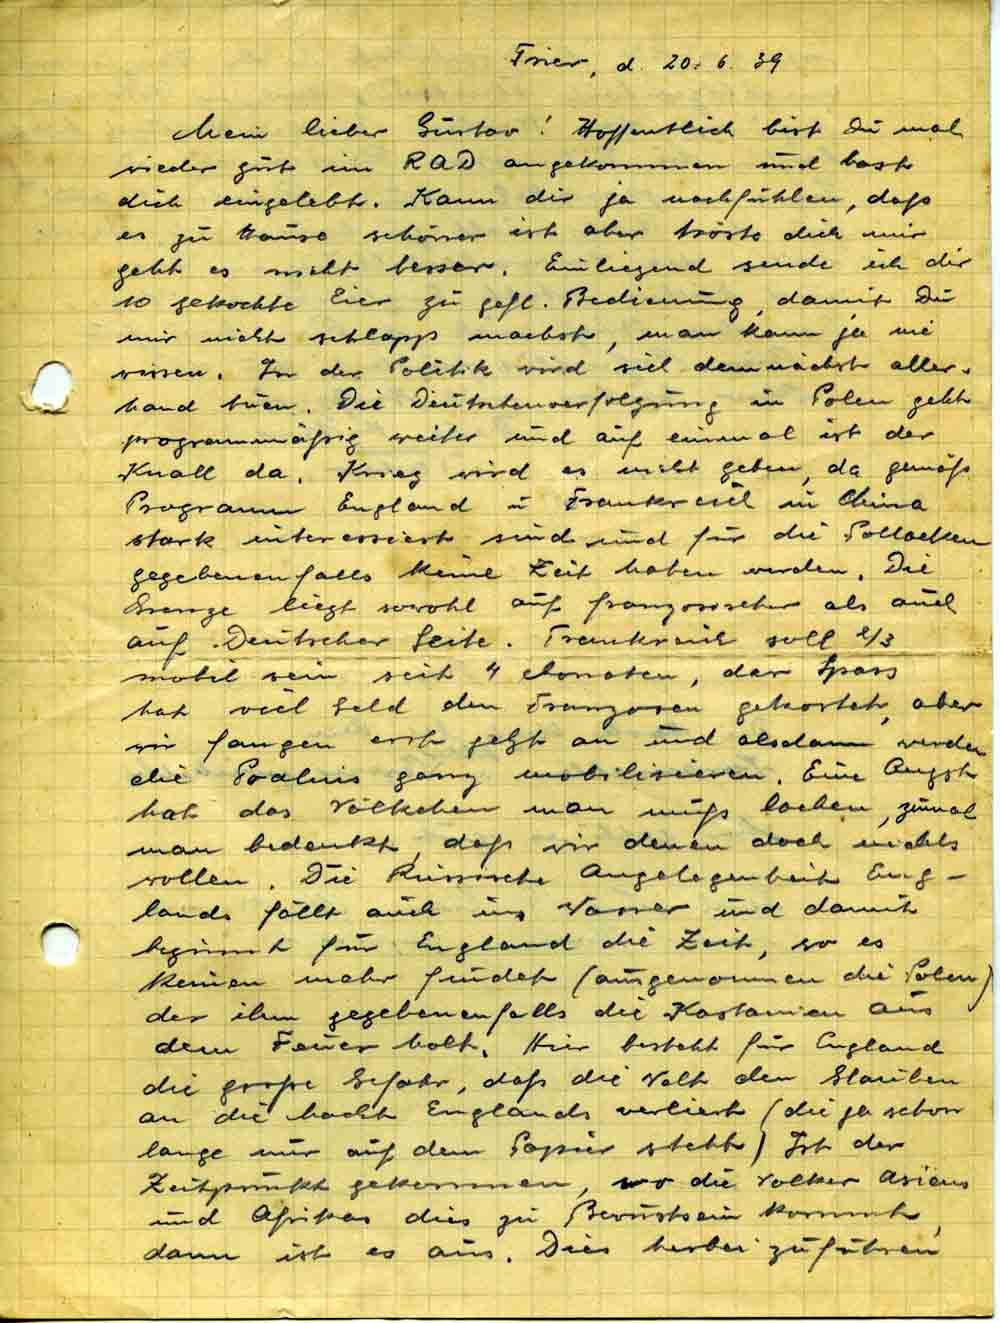 Trier, d. 20. 6. 39
Mein lieber Gustav! Hoffentlich bist Du mal
wieder gut im RAD angekommen und hast
dich eingelebt. Kann dir ja nachfühlen, daß
es zu Hause schöner ist aber tröste dich mir
geht es nicht besser. Einliegend sende ich dir
10 gekochte Eier zu gefl. Bedienung, damit Du
mir nicht schlapp machst, man kann ja nie
wissen. In der Politik wird sich demnächst aller-
hand tuen. Die Deutschenverfolgung in Polen geht
programmäßig weiter und auf einmal ist der
Knall da. Krieg wird es nicht geben, da gemäß
Programm England u Frankreich in China
stark interessiert sind und für die Pollacken
gegebenenfalls keine Zeit haben werden. Die
Grenze liegt sowohl auf französischer als auch
auf Deutscher Seite. Frankreich soll 2/3
mobil sein seit 4 Monaten, der Spass
hat viel Geld den Franzosen gekostet, aber
wir fangen erst jetzt an und alsdann werden
die ganz mobilisieren. Eine Angst
hat das Völkchen man muß lachen, zumal
man bedenkt, daß wir denen doch nichts
wollen. Die Russische Angelegenheit Eng-
lands fällt auch ins Wasser und damit
beginnt für England die Zeit, wo es
keinen mehr findet (ausgenommen die Polen)
der ihm gegebenenfalls die Kastanien aus
dem Feuer holt. Hier besteht für England
die große Gefahr, daß die Welt den Glauben
an die Macht Englands verliert (die ja schon
lange nur auf dem Papier steht) Ist der
Zeitpunkt gekommen, wo die Völker Asiens
und Afrikas dies zu Bewustsein kommt,
dann ist es aus. Dies herbei zuführen